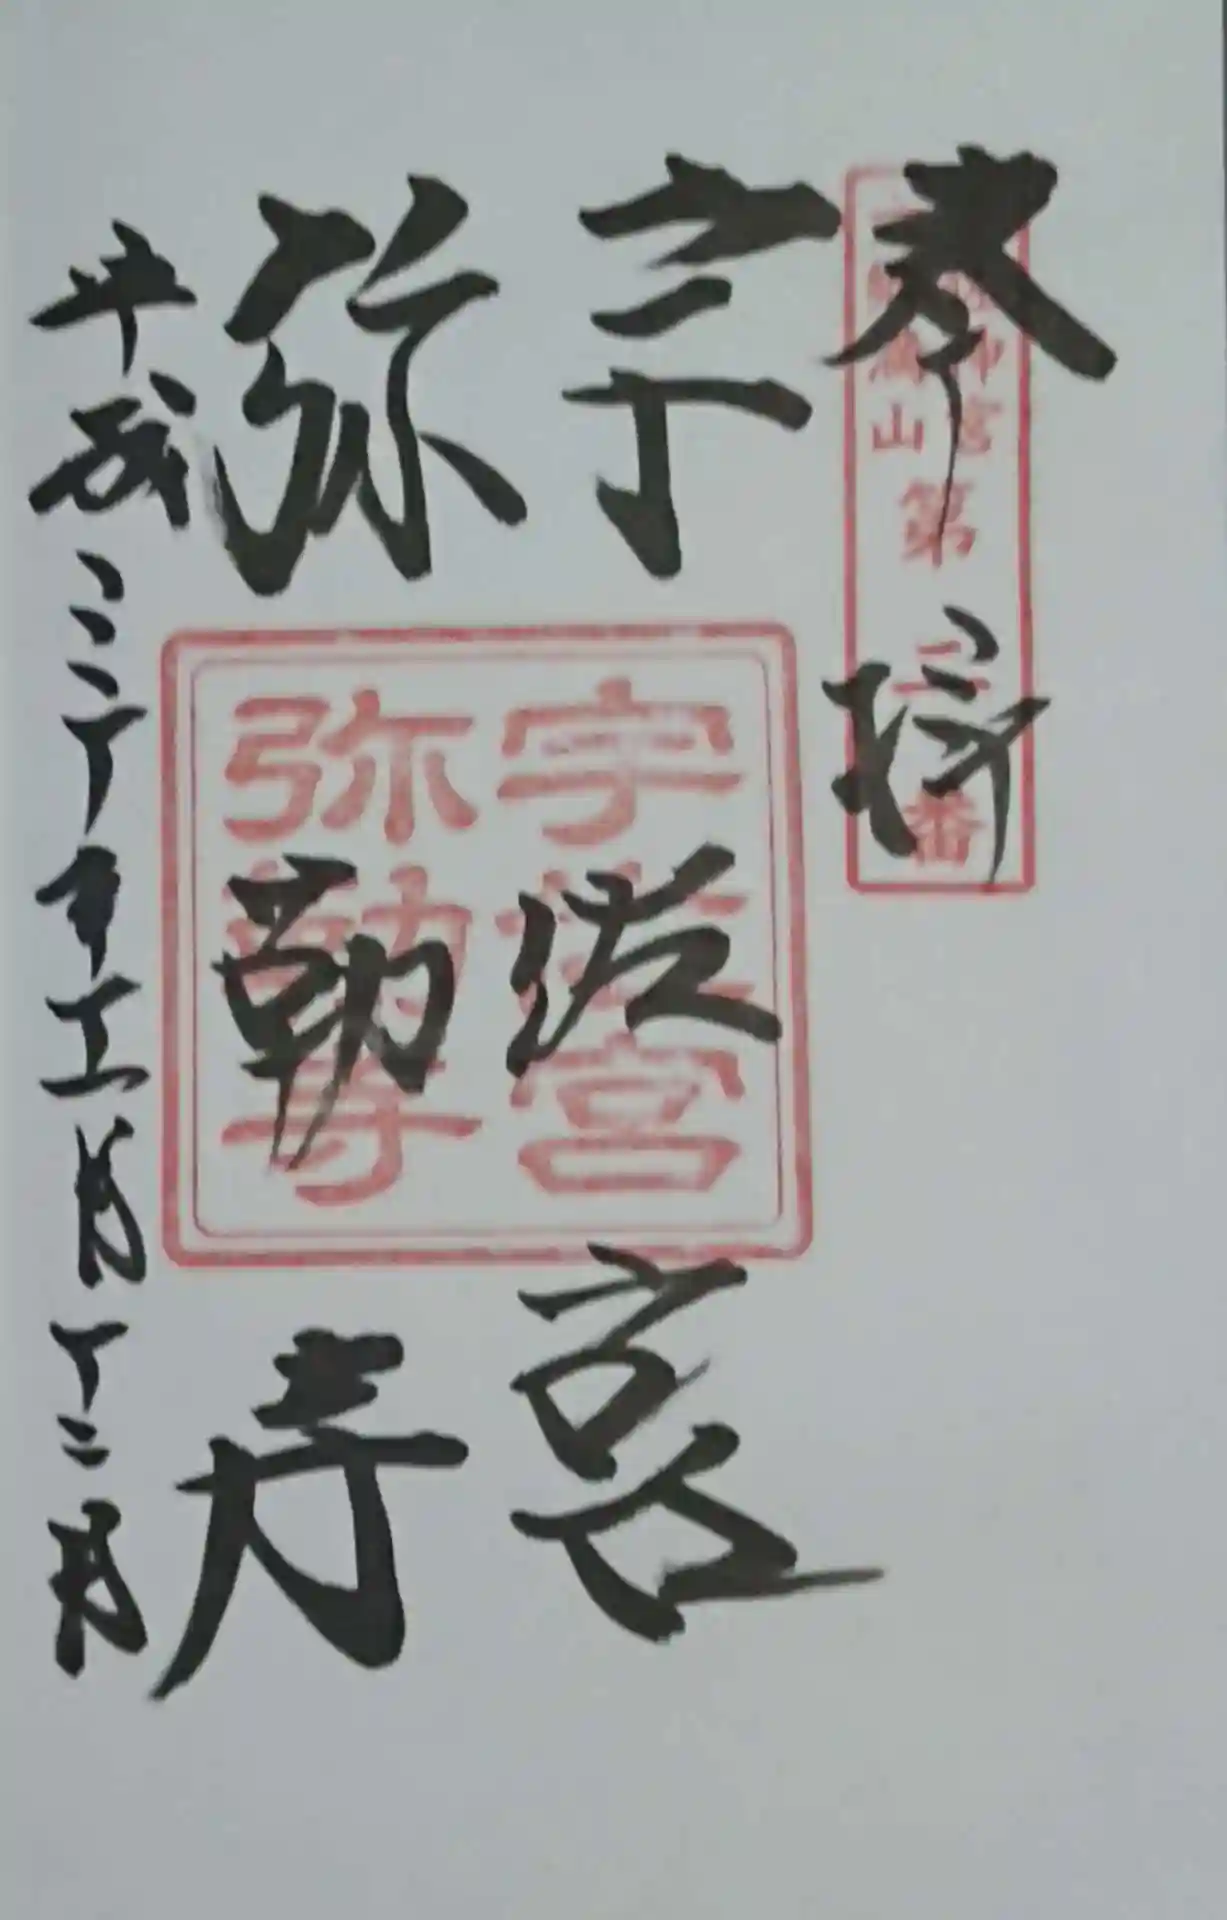 奉拝
第 番
宇佐宮
弥勒寺
宇佐宮
弥勒寺
平成三十年五月十二日